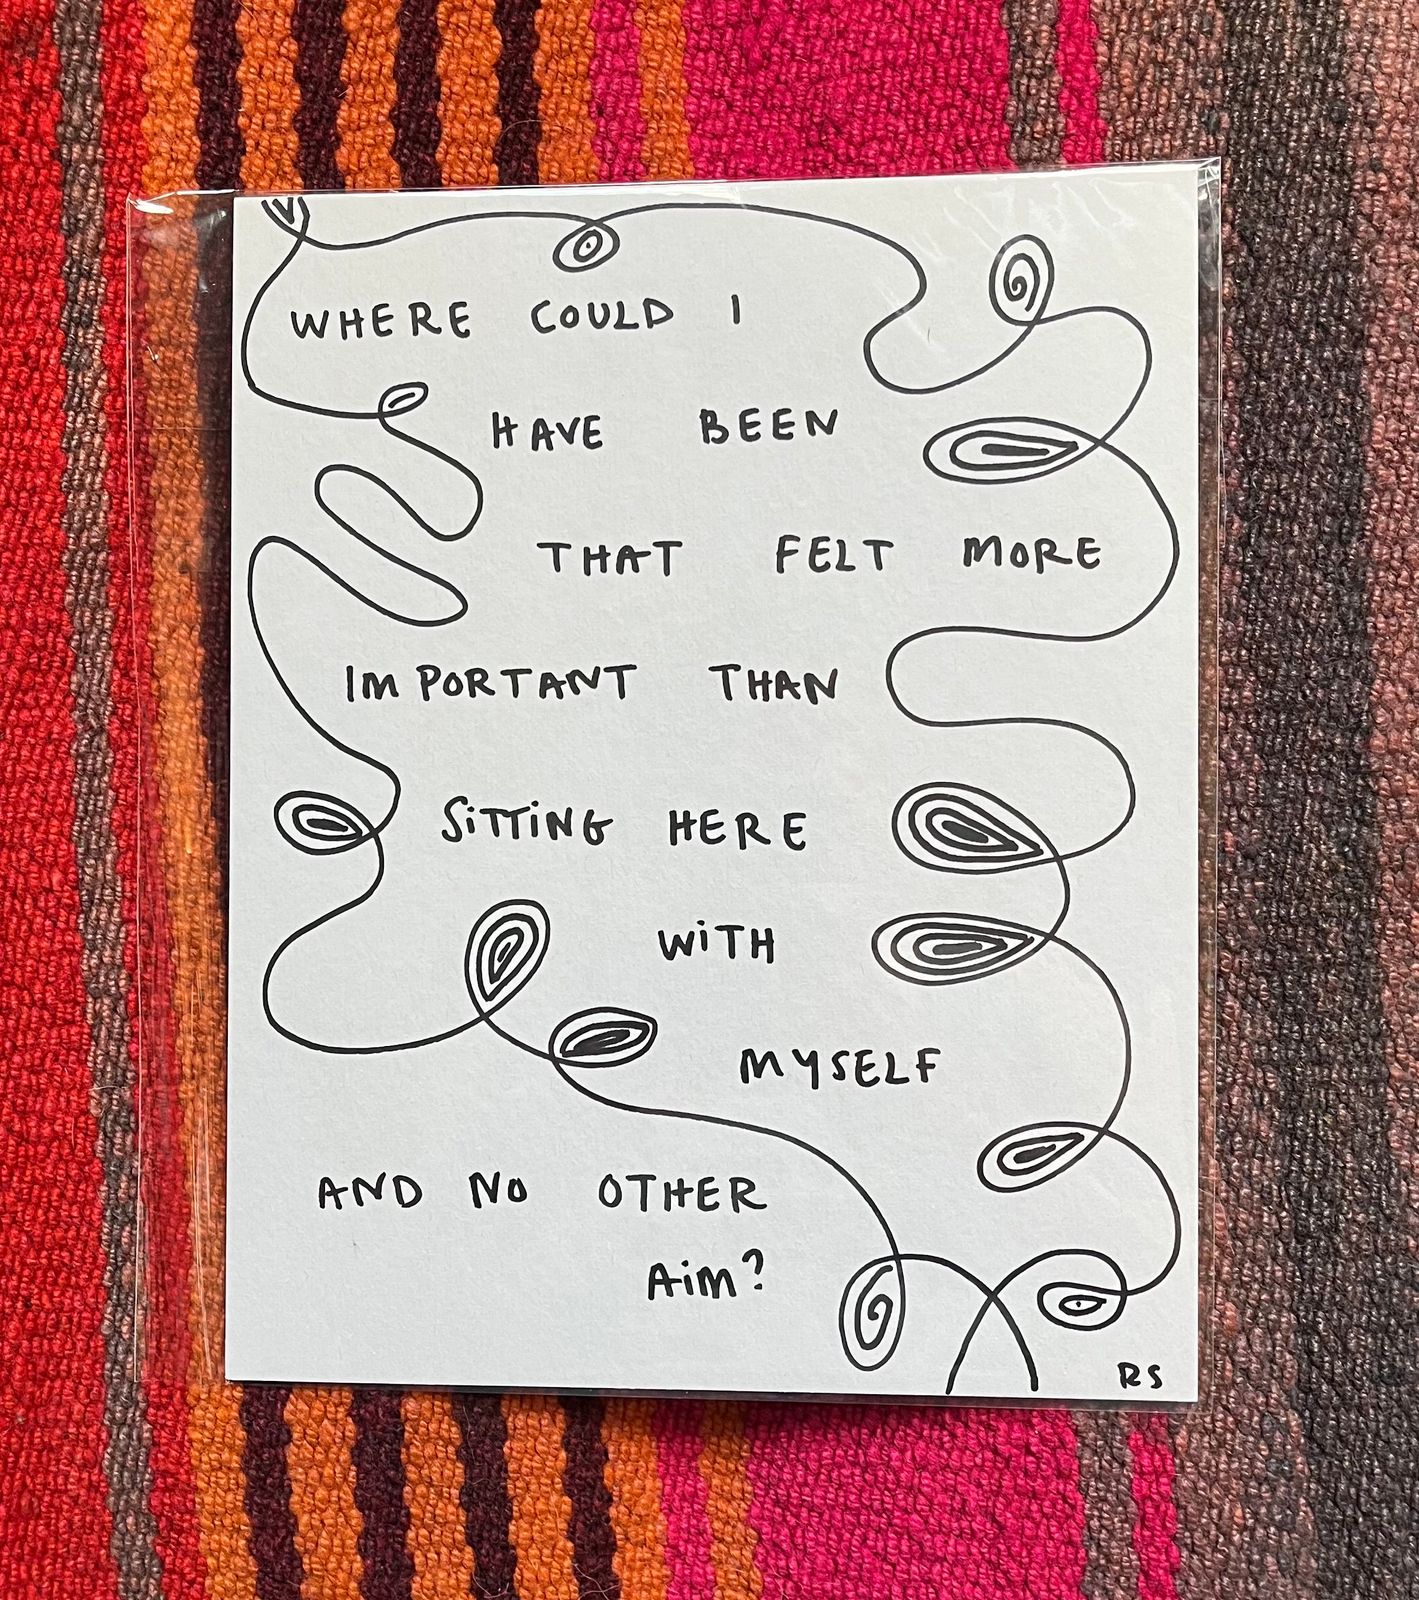 WHERE COULD I
HAVE BEEN
THAT FELT MORE
IMPORTANT THAN
SiTTiNG HERE
WiTH
MYSELF
AND NO OTHER
AiM?
RS